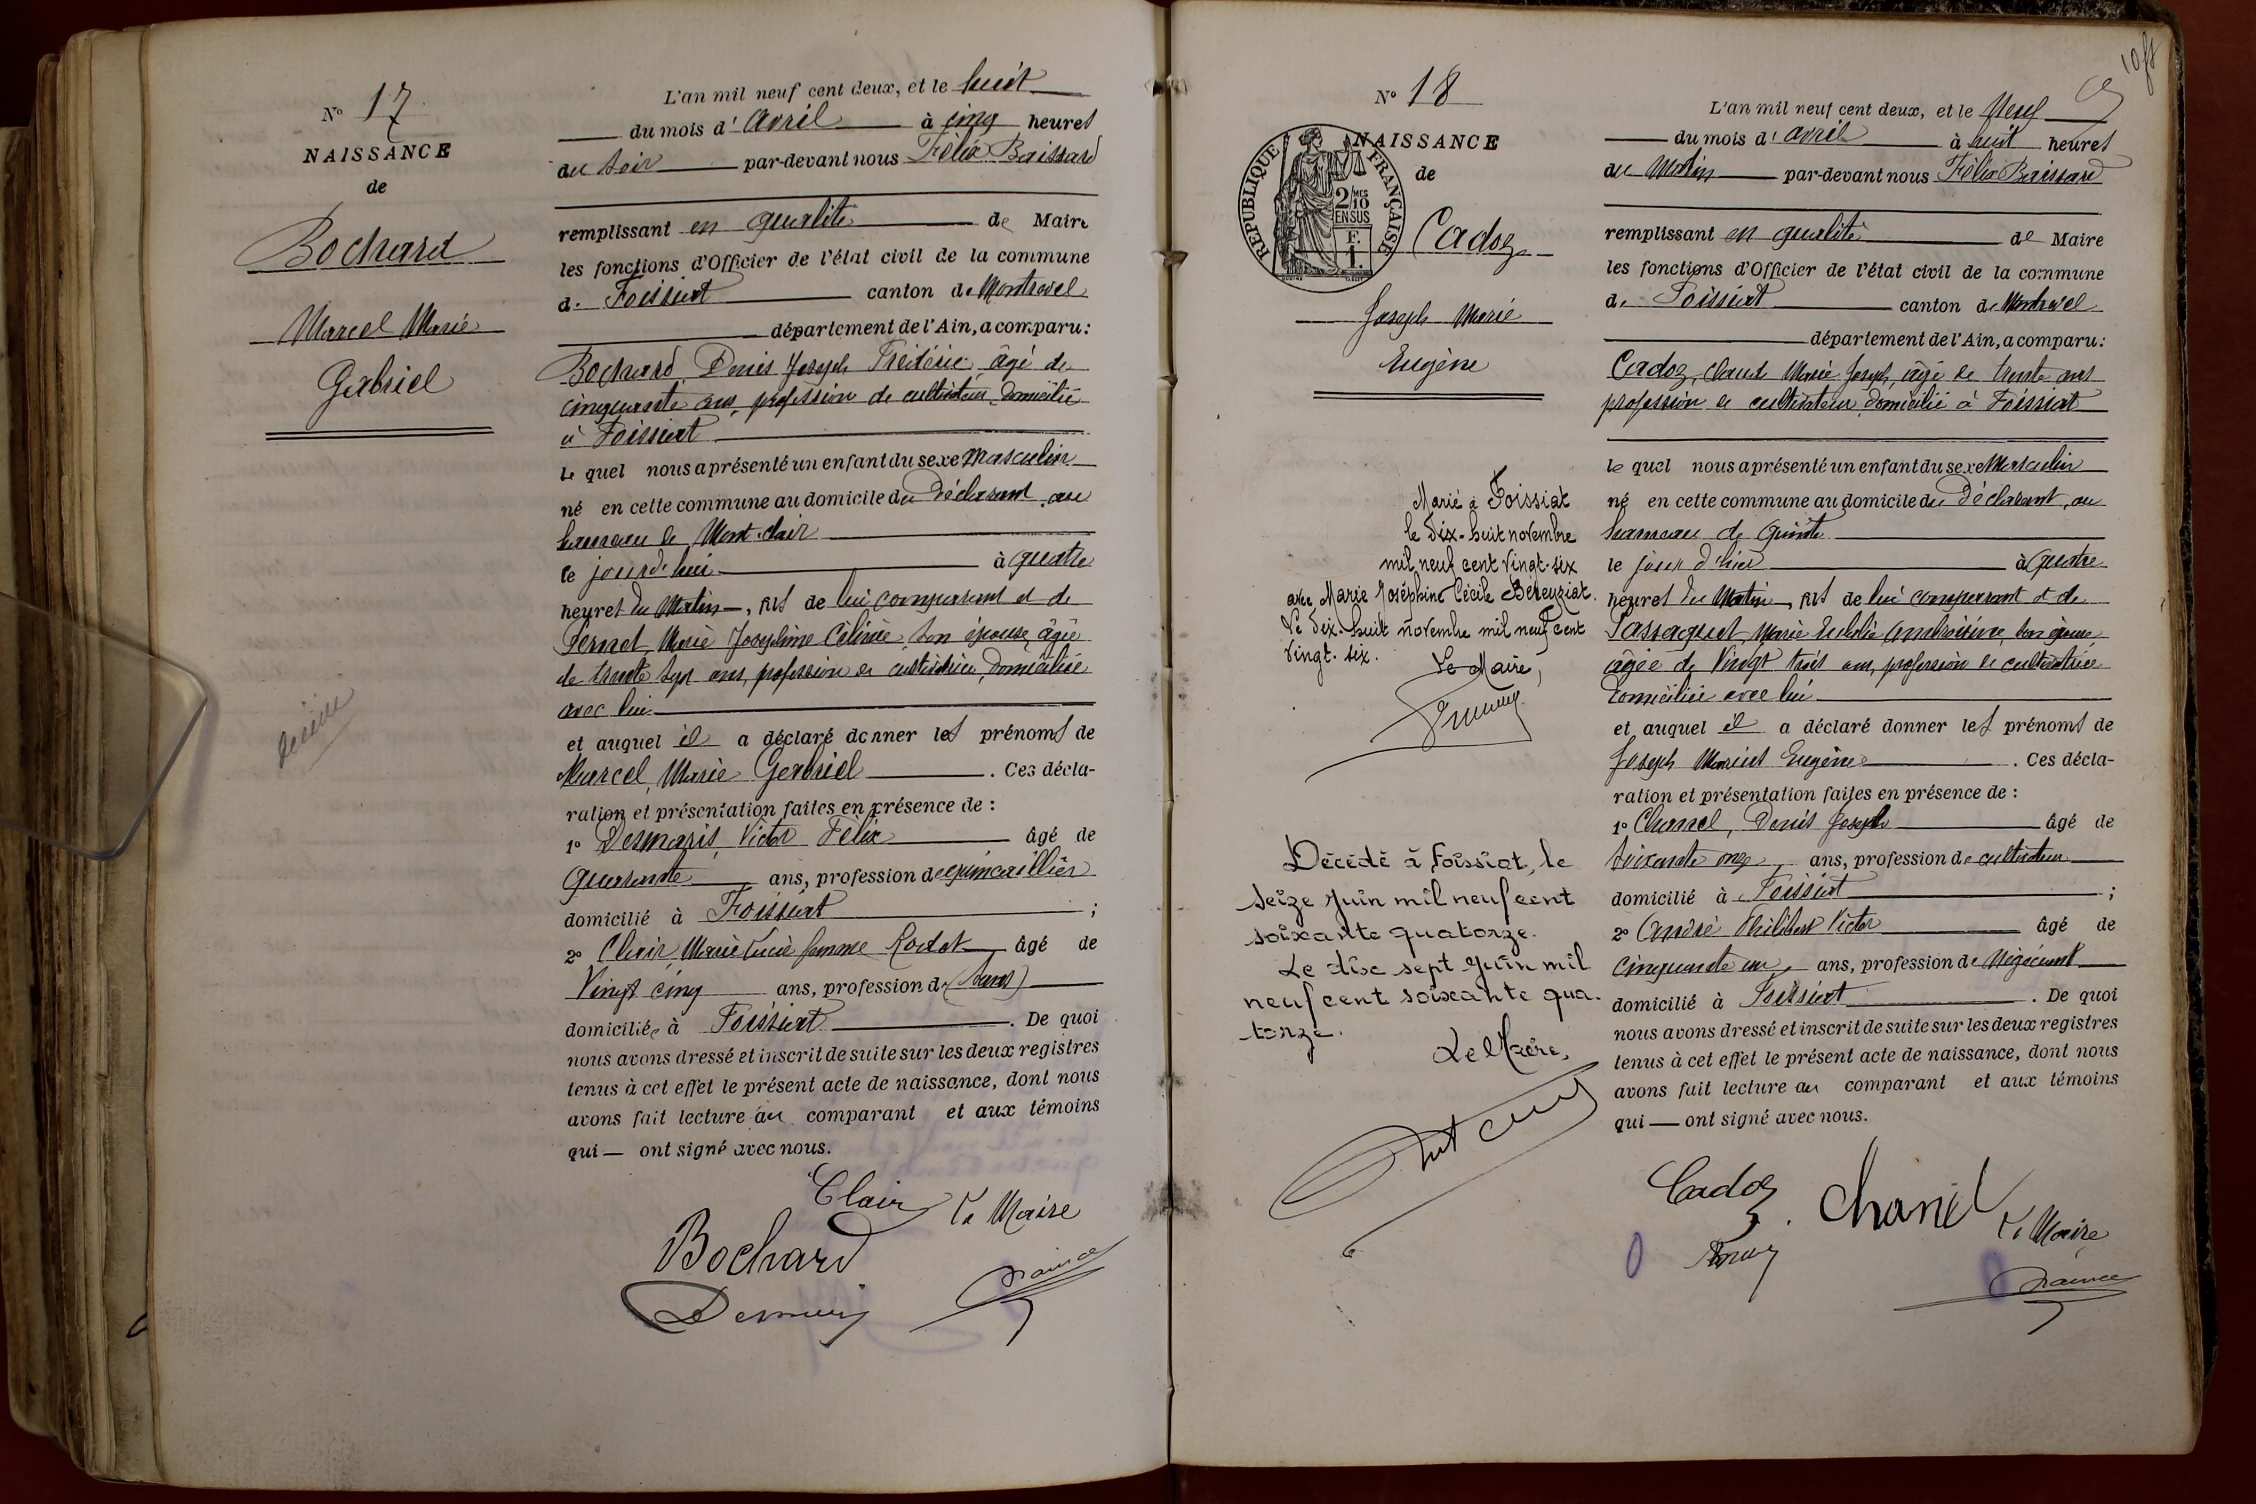 N° 17
NAISSANCE
de
Bochard
Marcel Marie
Gabriel
décédé
L'an mil neuf cent deux, et le huit
du mois d'avril à cinq heures
du soir par-devant nous Félix Baissard
remplissant en qualité de Maire
les fonctions d'Officier de l'état civil de la commune
de Foissiat canton de Montrevel
département de l'Ain, a comparu:
Bochard, Denis Joseph Frédéric, âgé de
cinquante ans, profession de cultivateur, domicilié
à Foissiat
le quel nous a présenté un enfant du sexe Masculin
né en cette commune au domicile du Déclarant, au
hameau de Mont-clair
le jourd'hui à quatre
heures du Matin, fils de lui comparant et de
Pernet, Marie Joséphine Célinie, son épouse, âgée
de trente sept ans, profession de cultivatrice, domiciliée
avec lui
et auquel il a déclaré donner les prénoms de
Marcel, Marie Gabriel. Ces décla-
ration et présentation faites en présence de :
1° Desmaris, Victor Félix âgé de
Quarante ans, profession de quincaillier
domicilié à Foissiat ;
2° Clair, Marie Lucie femme Rodet âgé de
Vingt cinq ans, profession de (sans)
domiciliée à Foissiat. De quoi
nous avons dressé et inscrit de suite sur les deux registres
tenus à cet effet le présent acte de naissance, dont nous
avons fait lecture au comparant et aux témoins
qui — ont signé avec nous.
Clair Le Maire
Bochard
N° 18
NAISSANCE
de
REPUBLIQUE FRANÇAISE
2/10 MES
EN SUS
F.
1.
Cadoz
Joseph Marie
Eugène
Marié à Foissiat
le dix-huit novembre
mil neuf cent vingt-six
avec Marie Joséphine Cécile Béreyziat.
Le dix-huit novembre mil neuf cent
vingt-six.
Le Maire,
Décédé à Foissiat, le
seize juin mil neuf cent
soixante quatorze.
Le dix sept juin mil
neuf cent soixante qua-
torze.
Le Maire,
L'an mil neuf cent deux, et le Neuf
du mois d'avril à huit heures
du Matin par-devant nous Félix Baissard
remplissant en qualité de Maire
les fonctions d'Officier de l'état civil de la commune
de Foissiat canton de Montrevel
département de l'Ain, a comparu:
Cadoz, Claude Marie Joseph, âgé de trente ans
profession de cultivateur, domicilié à Foissiat
le quel nous a présenté un enfant du sexe Masculin
né en cette commune au domicile du Déclarant, au
hameau de
le jour d'hier à quatre
heures du Matin, fils de lui comparant et de
Marie son épouse
âgée de Vingt trois ans, profession de cultivatrice
domiciliée avec lui
et auquel il a déclaré donner les prénoms de
Joseph Marie Eugène. Ces décla-
ration et présentation faites en présence de :
1° Chanel, Denis Joseph âgé de
soixante onze ans, profession de cultivateur
domicilié à Foissiat ;
2° André Philibert Victor âgé de
Cinquante un ans, profession de Négociant
domicilié à Foissiat. De quoi
nous avons dressé et inscrit de suite sur les deux registres
tenus à cet effet le présent acte de naissance, dont nous
avons fait lecture au comparant et aux témoins
qui — ont signé avec nous.
Cadoz Chanel Le Maire